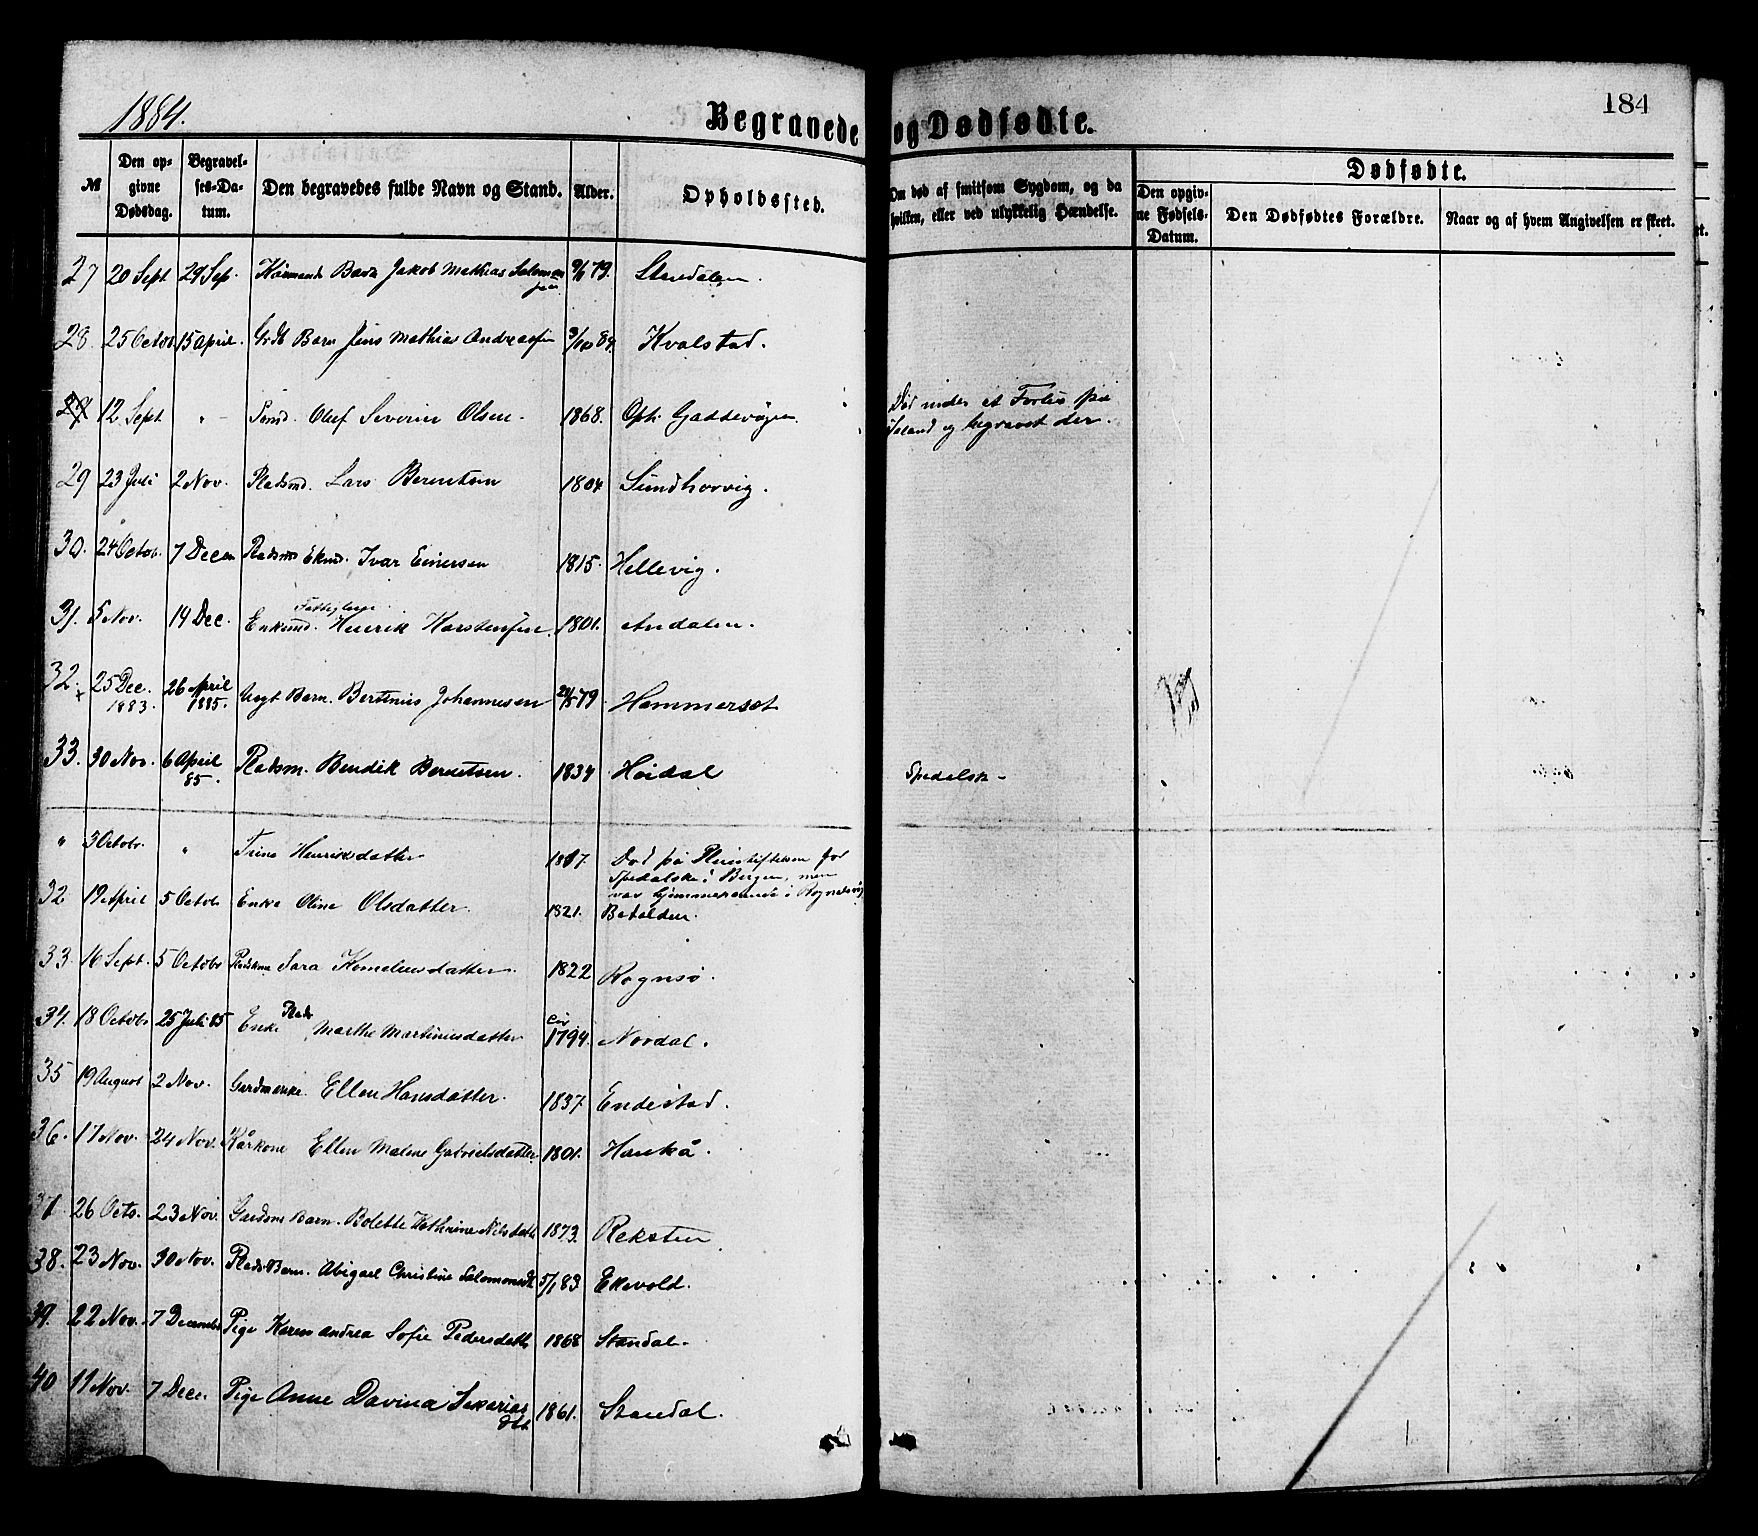 1884.
Begravede og Dødfødte.
184
№
Den opgivne Dødsdag.
Begravelses-Datum.
Den begravedes fulde Navn og Stand.
Alder.
Opholdssted.
Om død af smitsom Sygdom, og da hvilken, eller ved ulykkelig Hændelse.
Dødfødte.
Den opgivne Fødsels-Datum.
Den Dødfødtes Forældre.
Naar og af hvem Angivelsen er skeet.
27 20 Sept 29 Sep. Barn Jakob Mathias Salomon 79. Standalen.
28. 25 Octob. 15 April. Barn Jens Mathias Andreassen 3/10 84. Kvalstad.
12 Sept " Oluf Severin Olsen 1868. Oph. Død under et Forlis på
Island og begravet der.
29 23 Juli 2 Nov. Pladsmd. Lars Berentsen 1804. Sundhorvig.
30. 24 Octob. 7 Decem Pladsmd Ekmd. Ivar Einersen 1815. Hellevig.
31. 5 Nov. 14 Dec. Enkmd. Henrik Karstensen 1801. Andalen.
32. 25 Dec. 1883. 26 April 1885. Ungt Barn. Bertinus Johannesen 79 Hammerset
33. 30 Nov. 6 April 85. Pladsm. Bendik Berntsen. 1834 Høidal Spedalsk
" 3 Octobr. " Trine Henriksdatter 1817. Død på Pleiestiftelsen for
Spedalske i Bergen, men
var hjemmehørende i
32 19 April 5 Octob Enke Oline Olsdatter. 1821. Batalden.
33. 16 Sept. 5 Octobr Pladskone Sara Korneliusdatter. 1822 Rognsø.
34. 18 Octobr 25 Juli 85 Enke Plads Marthe Martinusdatter cir 1794. Nordal.
35 19 August 2 Nov. Gardmenke. Ellen Hansdatter. 1837. Endestad.
36. 17 Nov. 24 Nov. Kårkone Ellen Malene Gabrielsdatter 1801. Haukå.
37. 26 Octo. 23 Nov. Gardms Barn. Bolette Kathrine Nilsdatt 1873. Reksten
38. 23 Nov. 30 Nov. Plads Barn. Abigael Christine Salomonsdt 5/1 83. Ekevold.
39. 22 Nov. 7 Decembr Pige Karen Andrea Sofie Pedersdatt 1868 Standal.
40 11 Nov. 7 Dece. Pige Anne Davina Sakarias
dtt 1861. Standal.